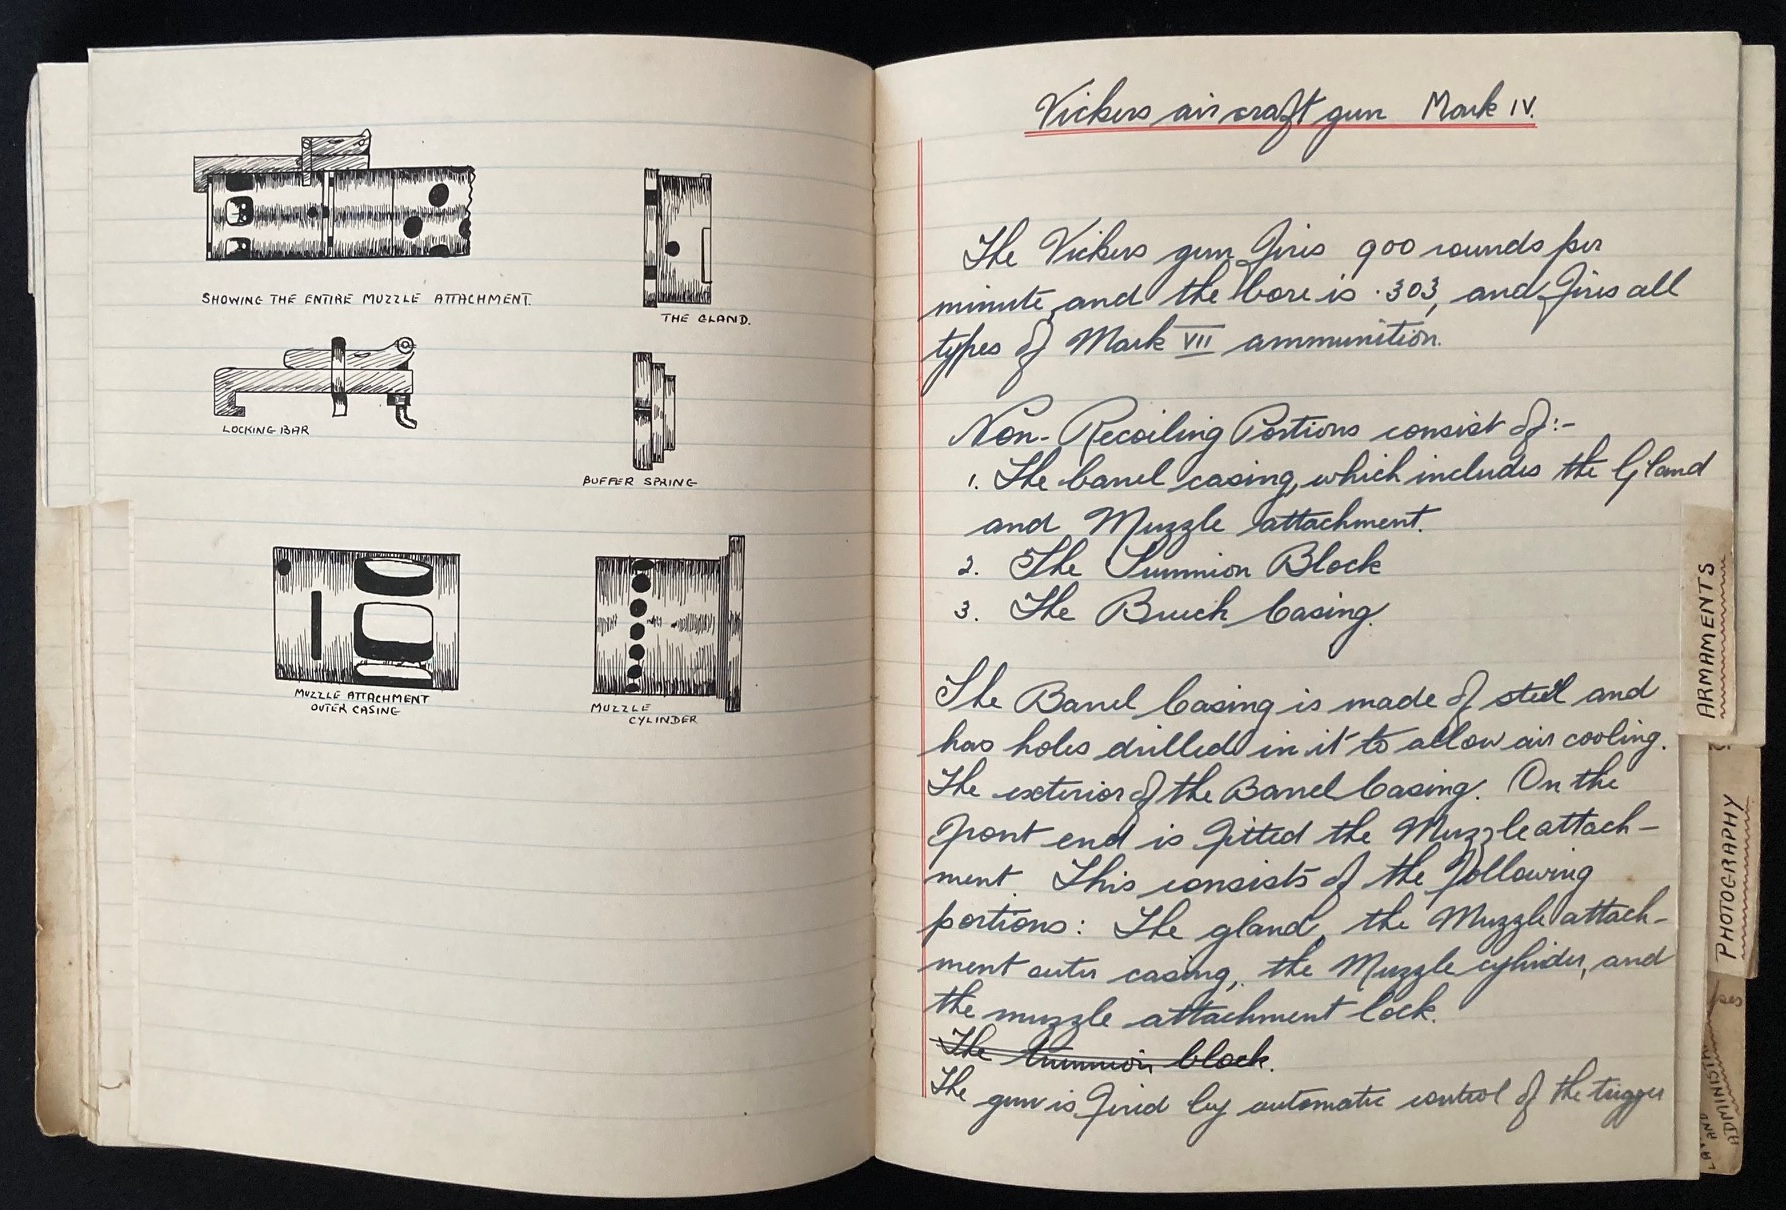 SHOWING THE ENTIRE MUZZLE ATTACHMENT.
THE GLAND.
LOCKING BAR
BUFFER SPRING
MUZZLE ATTACHMENT
OUTER CASING
MUZZLE
CYLINDER
Vickers aircraft gun Mark IV.
The Vickers gun fires 900 rounds per
minute, and the bore is .303, and fires all
types of Mark VII ammunition.
Non-Recoiling Portions consist of:-
1. The barrel casing, which includes the Gland
and Muzzle attachment.
2. The Trunnion Block
3. The Breech Casing.
The Barrel Casing is made of steel and
has holes drilled in it to allow air cooling.
The exterior of the Barrel Casing. On the
front end is fitted the Muzzle attach-
ment. This consists of the following
portions: The gland, the Muzzle attach-
ment outer casing, the Muzzle cylinder, and
the muzzle attachment lock.
The trunnion block.
The gun is fired by automatic control of the trigger
ARMAMENTS
PHOTOGRAPHY
AND